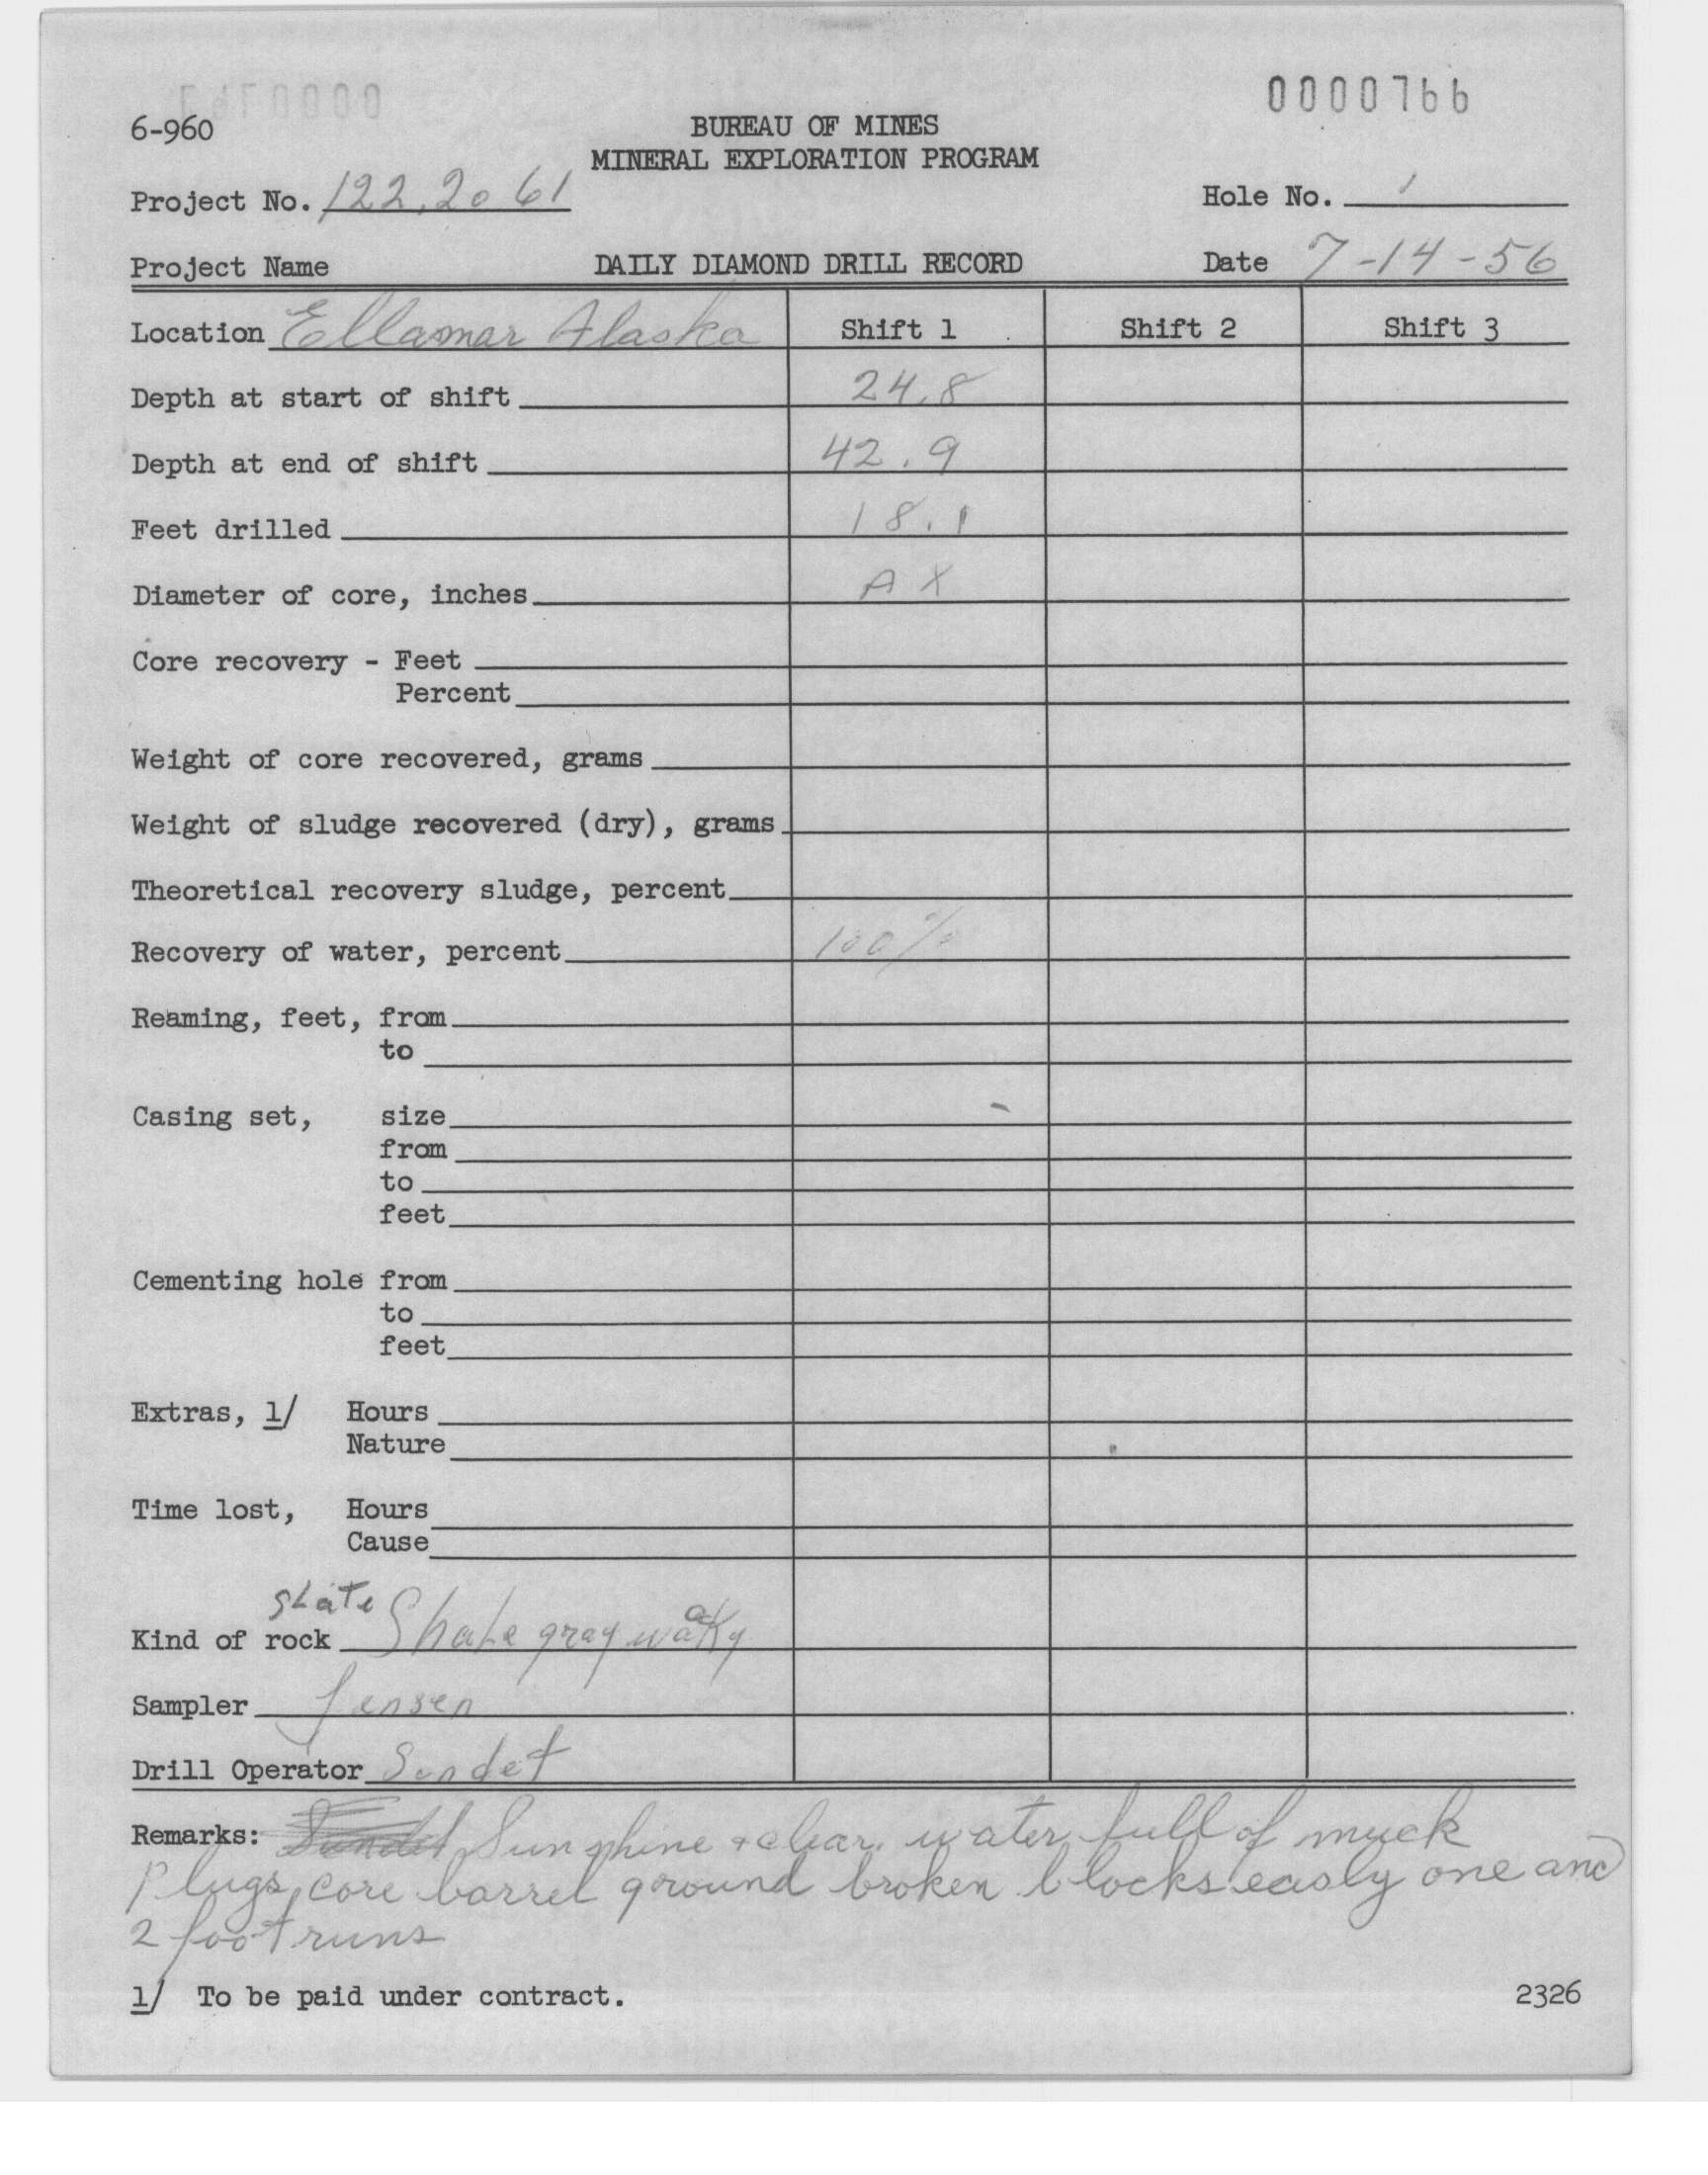 0000766
6-960
BUREAU OF MINES
MINERAL EXPLORATION PROGRAM
Project No. 122.2061
Hole No. 1
Project Name
DAILY DIAMOND DRILL RECORD
Date 7-14-56
Location Ellamar Alaska Shift 1 Shift 2 Shift 3
Depth at start of shift 24.8
Depth at end of shift 42.9
Feet drilled 18.1
Diameter of core, inches AX
Core recovery - Feet
Percent
Weight of core recovered, grams
Weight of sludge recovered (dry), grams
Theoretical recovery sludge, percent
Recovery of water, percent 100%
Reaming, feet, from
to
Casing set, size
from
to
feet
Cementing hole from
to
feet
Extras, 1/ Hours
Nature
Time lost, Hours
Cause
slate
Kind of rock Shale gray waky
Sampler Jensen
Drill Operator Sundet
Remarks: Sunshine + clear. water full of muck
Plugs core barrel ground broken blocks easly one and
2 foot runs
1/ To be paid under contract.
2326